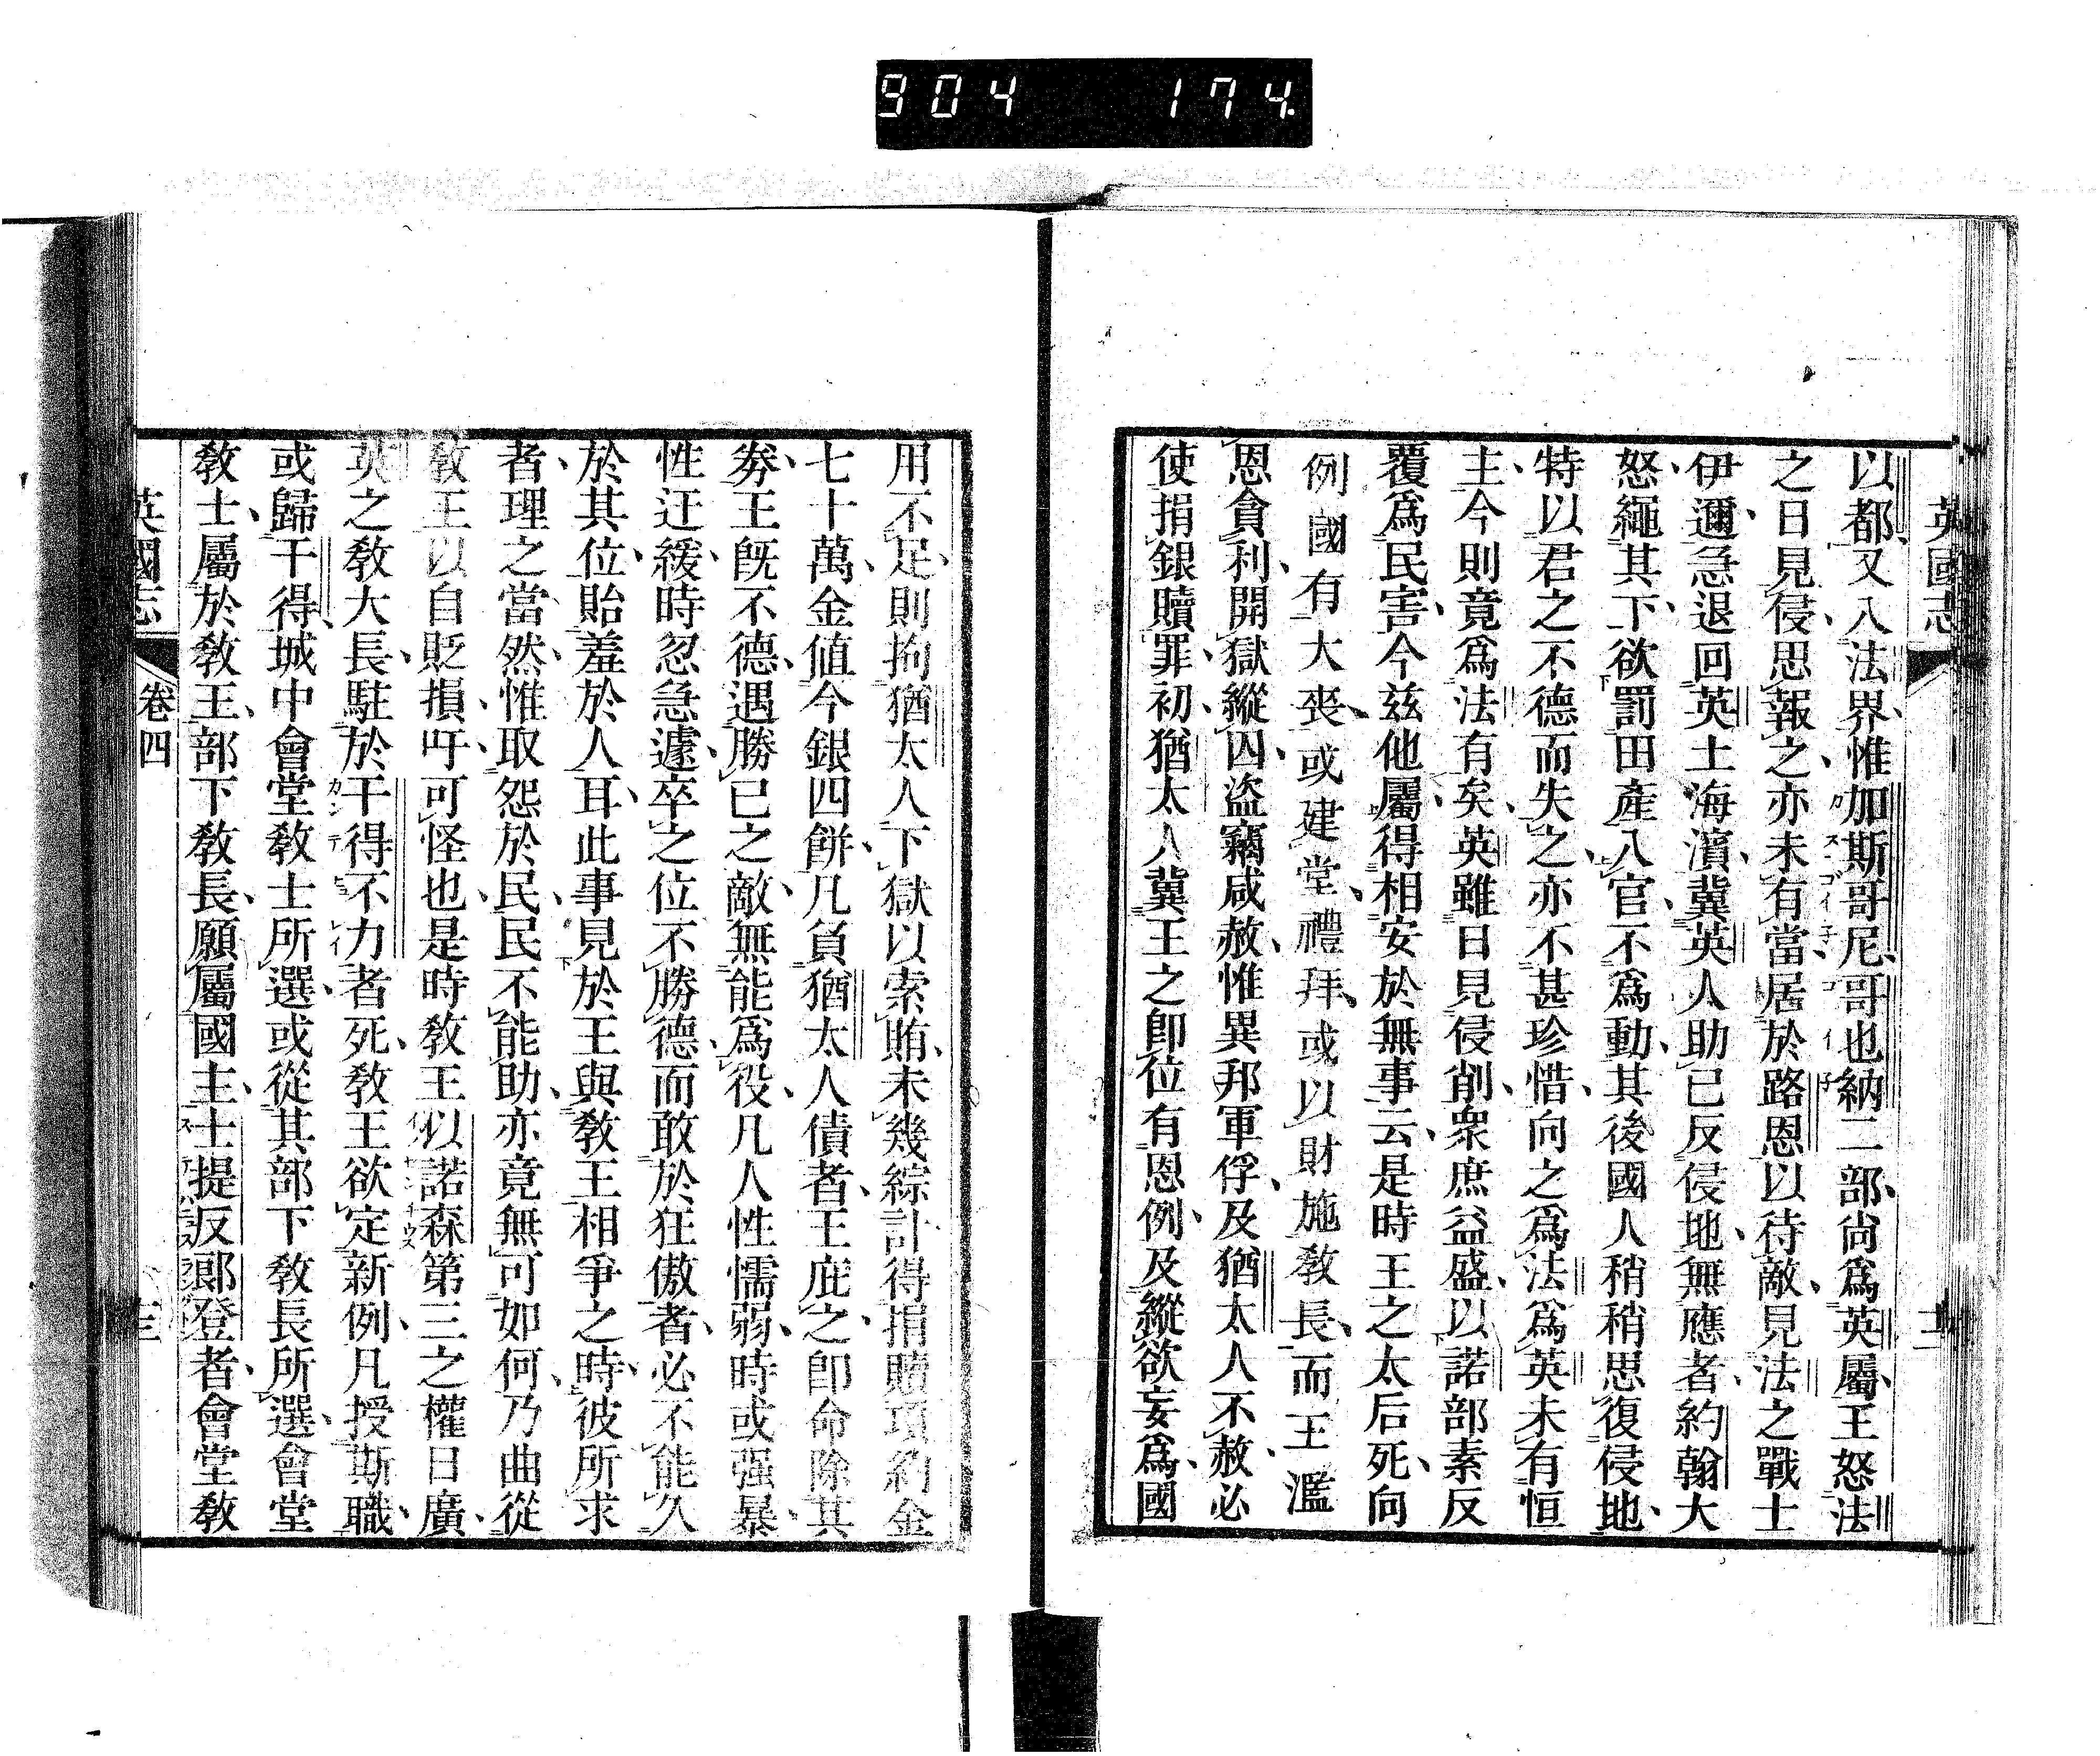 904 174.
英國志
二
以都又入法界惟加斯哥尼哥也納二部尚爲英屬王怒法
之日見侵思報之亦未有當居於路恩以待敵見法之戰士
伊邇急退回英土海濱冀英人助已反侵地無應者約翰大
怒繩其下欲罰田產入官不爲動其後國人稍稍思復侵地
特以君之不德而失之亦不甚珍惜向之爲法爲英未有恒
主今則竟爲法有矣英雖日見侵削衆庶益盛以諾部素反
覆爲民害今兹他屬得相安於無事云是時王之太后死向
例國有大喪或建堂禮拜或以財施敎長而王濫
恩貪利開獄縱囚盜竊咸赦惟異邦軍俘及猶太人不赦必
使捐銀贖罪初猶太人冀王之卽位有恩例及縱欲妄爲國
用不足則拘猶太人下獄以索賄未幾綜計得捐贖項約金
七十萬金値今銀四餅凡負猶太人債者王庇之卽命除其
劵王旣不德遇勝已之敵無能爲役凡人性懦弱時或强暴
性迂緩時忽急遽卒之位不勝德而敢於狂傲者必不能久
於其位貽羞於人耳此事見於王與敎王相爭之時彼所求
者理之當然惟取怨於民民不能助亦竟無可如何乃曲從
敎王以自貶損吁可怪也是時敎王以諾森第三之權日廣
英之敎大長駐於干得不力者死敎王欲定新例凡授斯職
或歸干得城中會堂敎士所選或從其部下敎長所選會堂
敎士屬於敎王部下敎長願屬國主士提反郎登者會堂敎
英國志
卷四
三